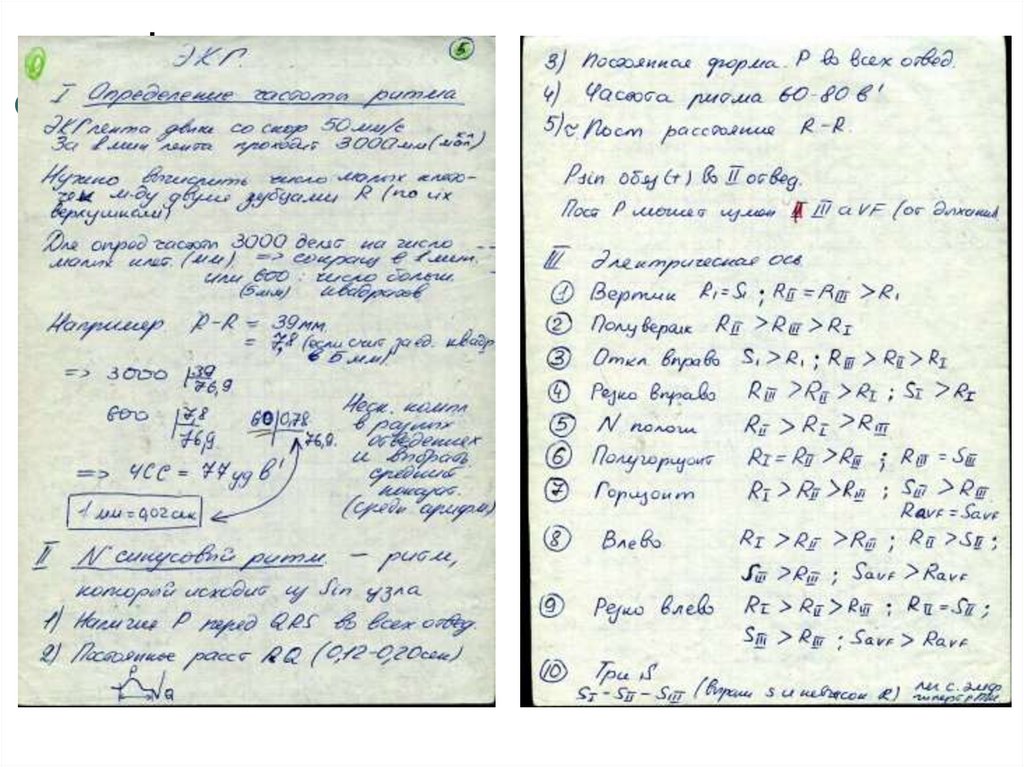 ЭКГ.
5
I Определение частоты ритма
ЭКГ лента движ со скор 50 мм/с
За 1 мин лента проходит 3000 мм (мал)
Нужно вычислить число малых клето-
чек м-ду двумя зубцами R (по их
верхушкам)
Для опред частоты 3000 делят на число
малых клет. (мм) => сокращ в 1 мин.
или 600 : число больш.
(5мм) квадратов
Например R-R = 39 мм
= 7,8 (если счит за ед. квадр
в 5 мм)
=> 3000 39
76,9
600 7,8
76,9
60 0,78
76,9.
Неск. компл
в разных
отведениях
и выбрать
средний
показат.
(средн арифм)
=> ЧСС = 77 уд в'
1 мм = 0,02 сек
II N синусовый ритм. – ритм,
который исходит из Sin узла
1) Наличие P перед QRS во всех отвед.
2) Постоянное расст PQ (0,12-0,20 сек)
P
Q
3) Постоянная форма P во всех отвед.
4) Частота ритма 60-80 в'
5) ~ Пост расстояние R-R.
Psin обяз (+) во II отвед.
Пост P может измен III aVF (от дыхания)
III Электрическая ось
1 Вертик R₁=S₁ ; RII = RIII > R₁
2 Полувертик RII > RIII > RI
3 Откл вправо S₁ > R₁ ; RIII > RII > RI
4 Резко вправо RIII > RII > RI ; SI > RI
5 N полож RII > RI > RIII
6 Полугоризонт RI = RII > RIII ; RIII = SIII
7 Горизонт RI > RII > RIII ; SIII > RIII
RaVF = SaVF
8 Влево RI > RII > RIII ; RII > SII ;
SIII > RIII ; SaVF > RaVF
9 Резко влево RI > RII > RIII ; RII = SII ;
SIII > RIII ; SaVF > RaVF
10 Три S
SI - SII - SIII (выраж S и невысок R)